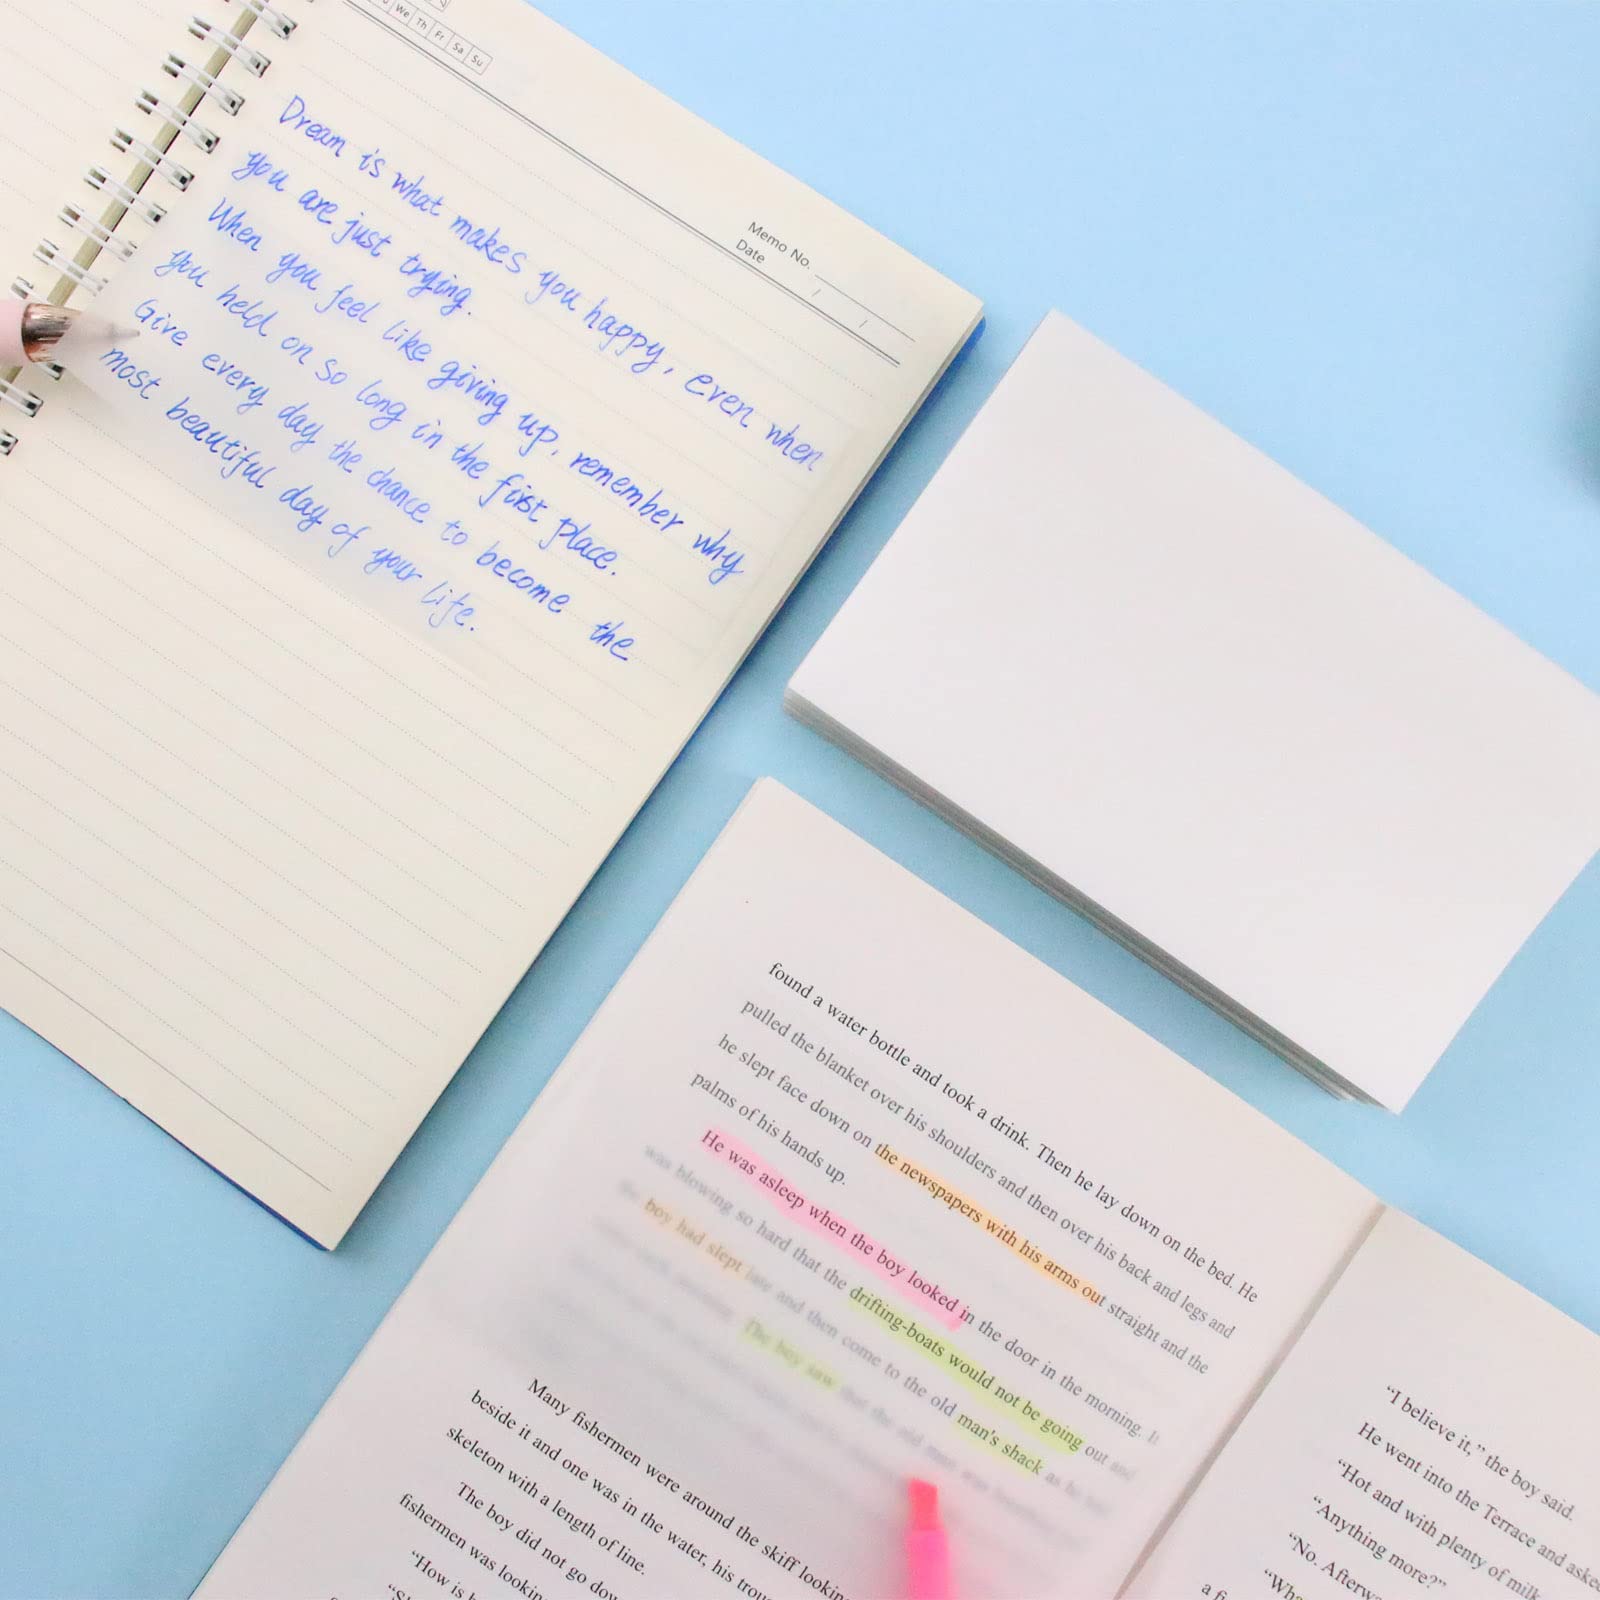 We Th Fr Sa Su
Memo No.
Date / /
Dream is what makes you happy, even when
you are just trying.
When you feel like giving up, remember why
you held on so long in the first place.
Give every day the chance to become the
most beautiful day of your life.
found a water bottle and took a drink. Then he lay down on the bed. He
pulled the blanket over his shoulders and then over his back and legs and
he slept face down on the newspapers with his arms out straight and the
palms of his hands up.
He was asleep when the boy looked in the door in the morning. It
was blowing so hard that the drifting-boats would not be going out and
the boy had slept late and then come to the old man's shack as he
The boy saw that the old man was
Many fishermen were around the skiff looking
beside it and one was in the water, his
skeleton with a length of line.
The boy did not go
fishermen was
"How is
"I believe it," the boy said.
He went into the Terrace and
"Hot and with plenty of milk
"Anything more?"
"No.
a